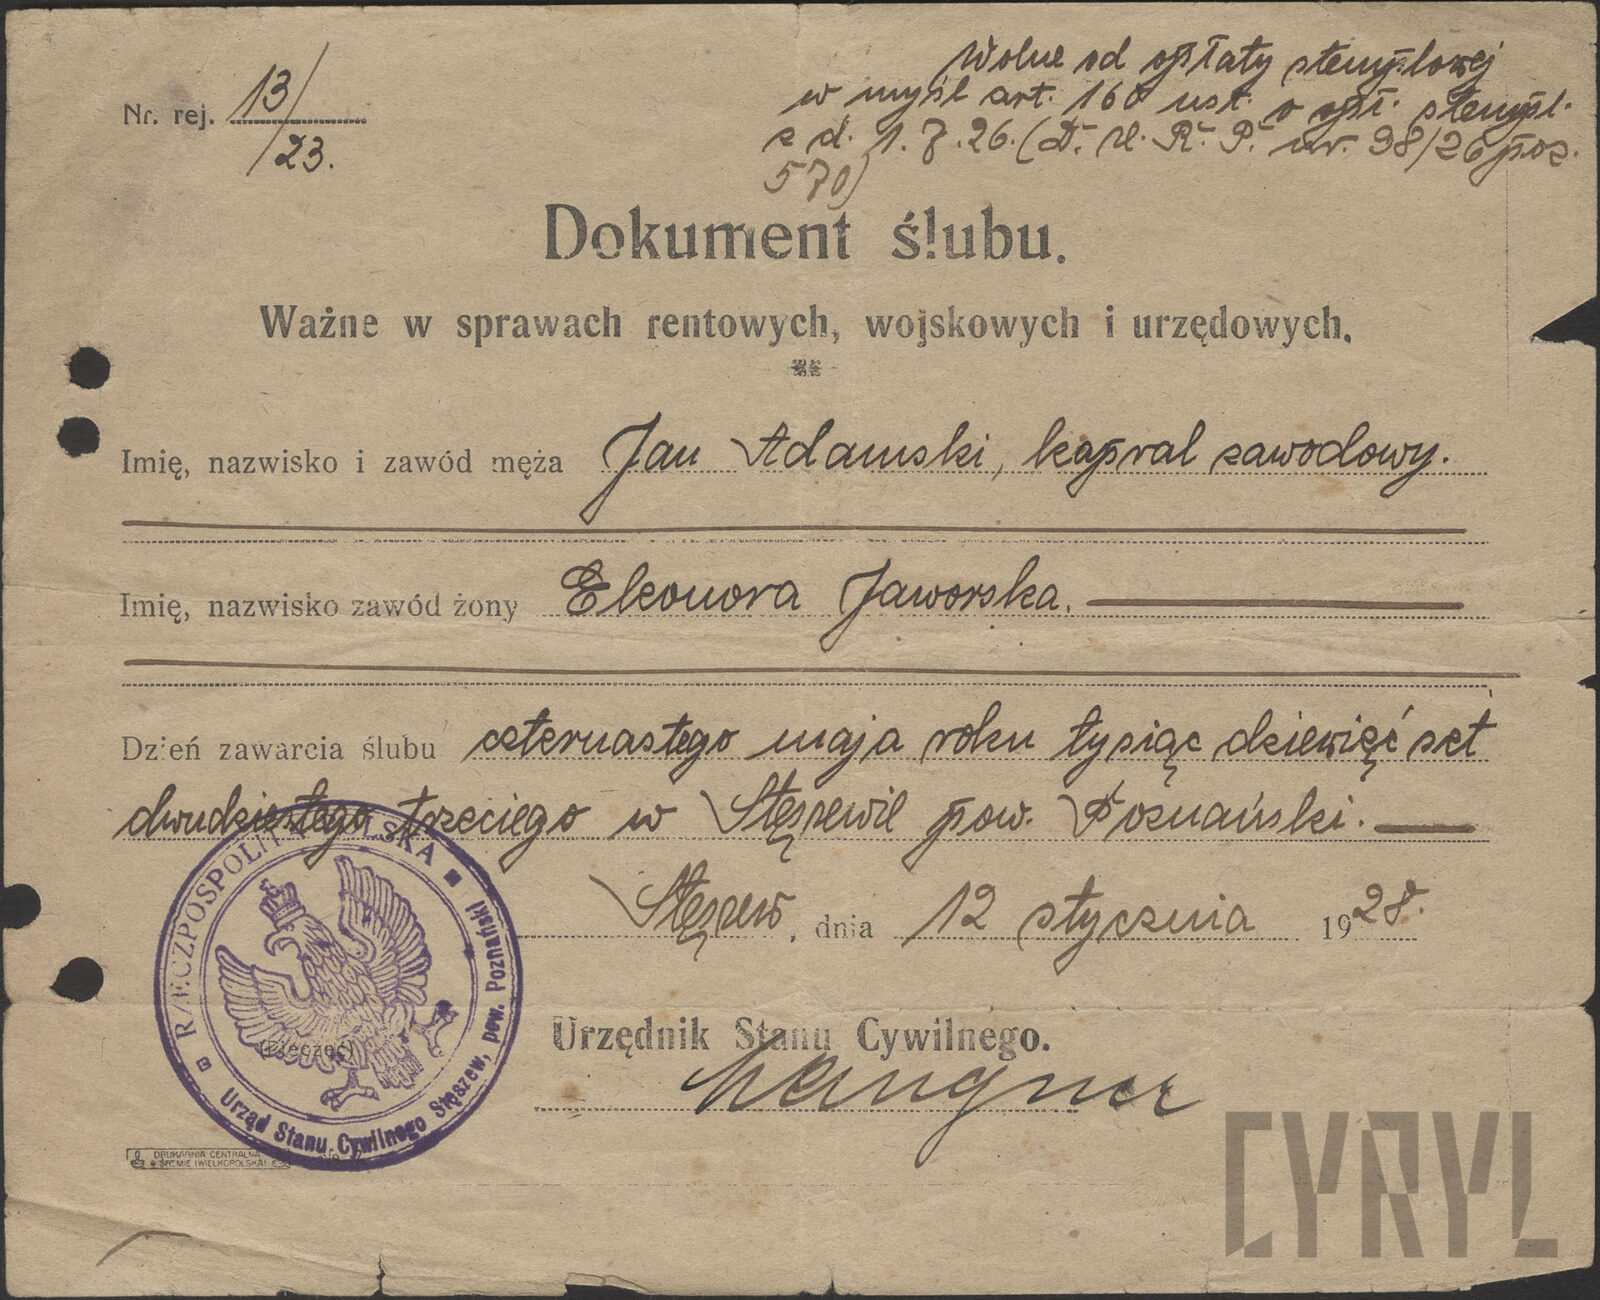 Wolne od opłaty stemplowej
w myśl art. 160 ust. o opł. stempl.
z d. 1.7.26. (Dz. U. R. P. nr. 98/26 poz.
570)
Nr. rej. 13/23.
Dokument ślubu.
Ważne w sprawach rentowych, wojskowych i urzędowych.
Imię, nazwisko i zawód męża Jan Adamski, kapral zawodowy.
Imię, nazwisko zawód żony Eleonora Jaworska.
Dzień zawarcia ślubu czternastego maja roku tysiąc dziewięć set
dwudziestego trzeciego w Stęszewie pow. Poznański.
Stęszew, dnia 12 stycznia 1928.
RZECZPOSPOLITA POLSKA
Urząd Stanu Cywilnego Stęszew, pow. Poznański
(Pieczęć)
Urzędnik Stanu Cywilnego.
DRUKARNIA CENTRALNA
CYRYL